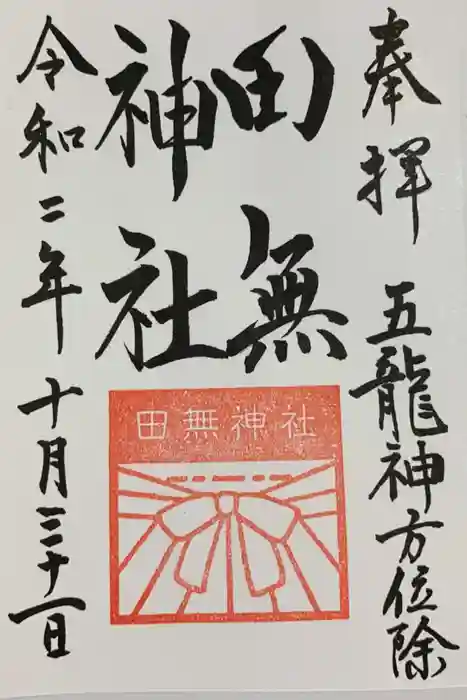 奉拝 五龍神方位除
田無
神社
田無神社
令和二年十月三十一日